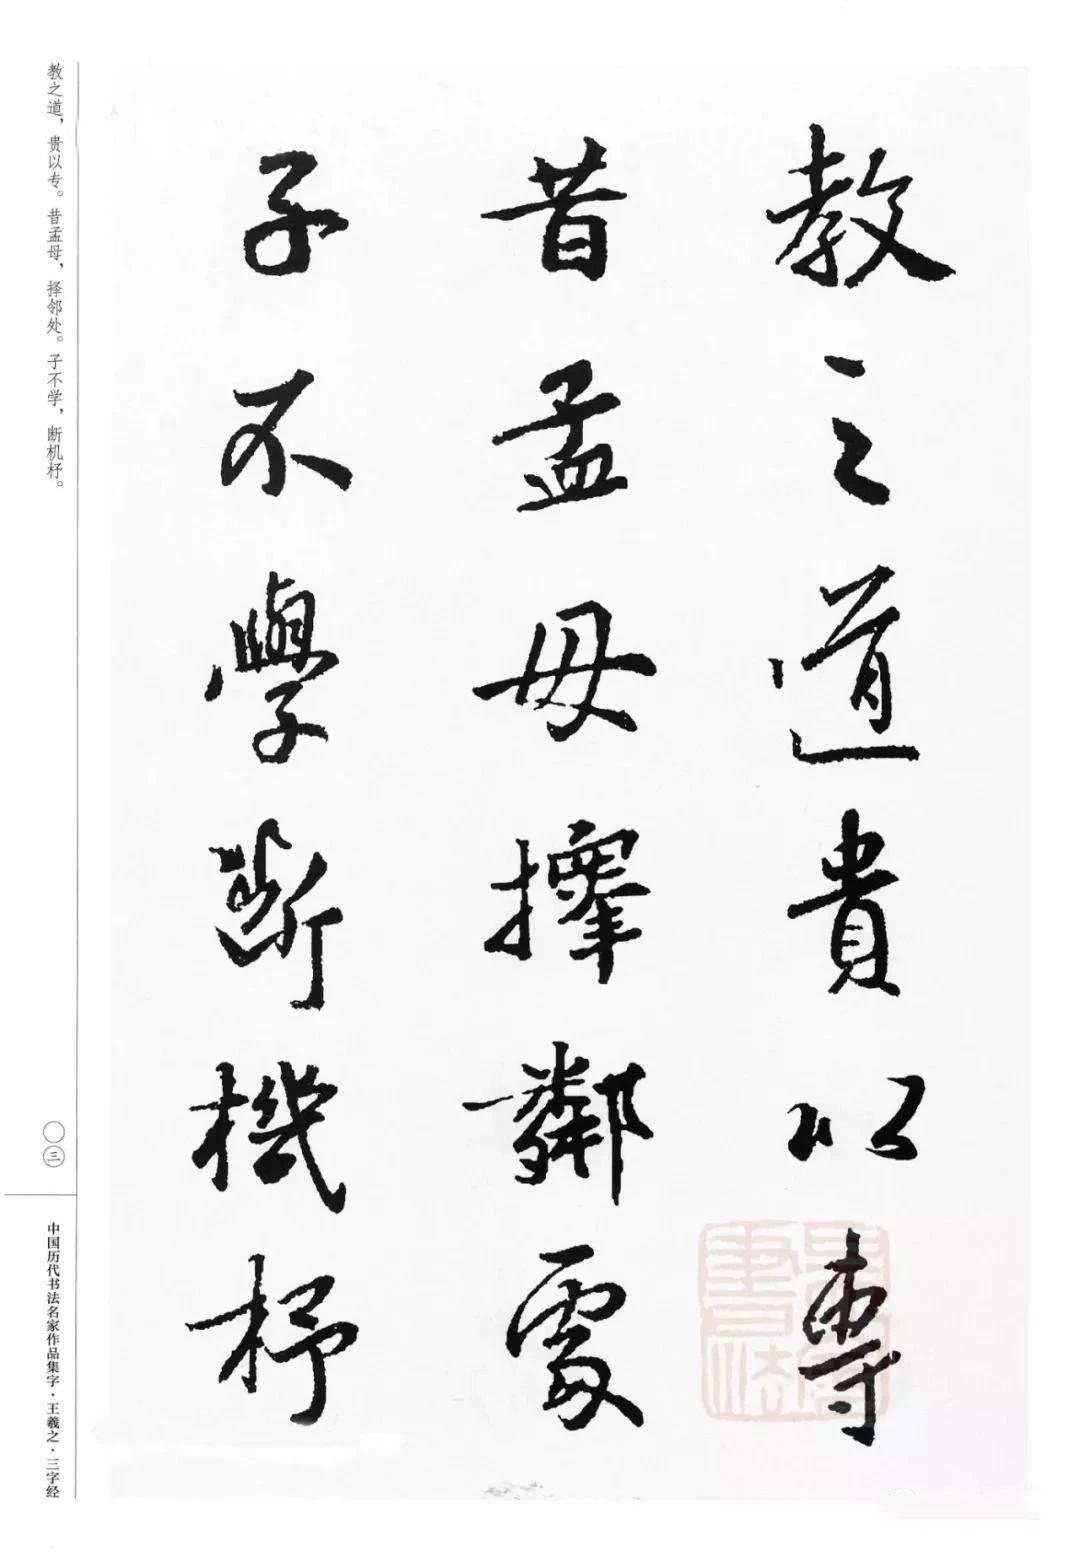 教之道貴以專
昔孟母擇鄰處
子不學斷機杼
教之道，贵以专。昔孟母，择邻处。子不学，断机杼。
〇三
中国历代书法名家作品集字·王羲之·三字经